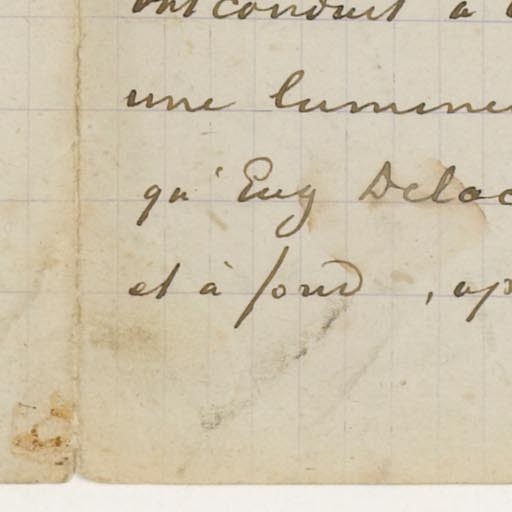 ont conduit à
une lumine
qu' Eug Delac
et à fond , ap